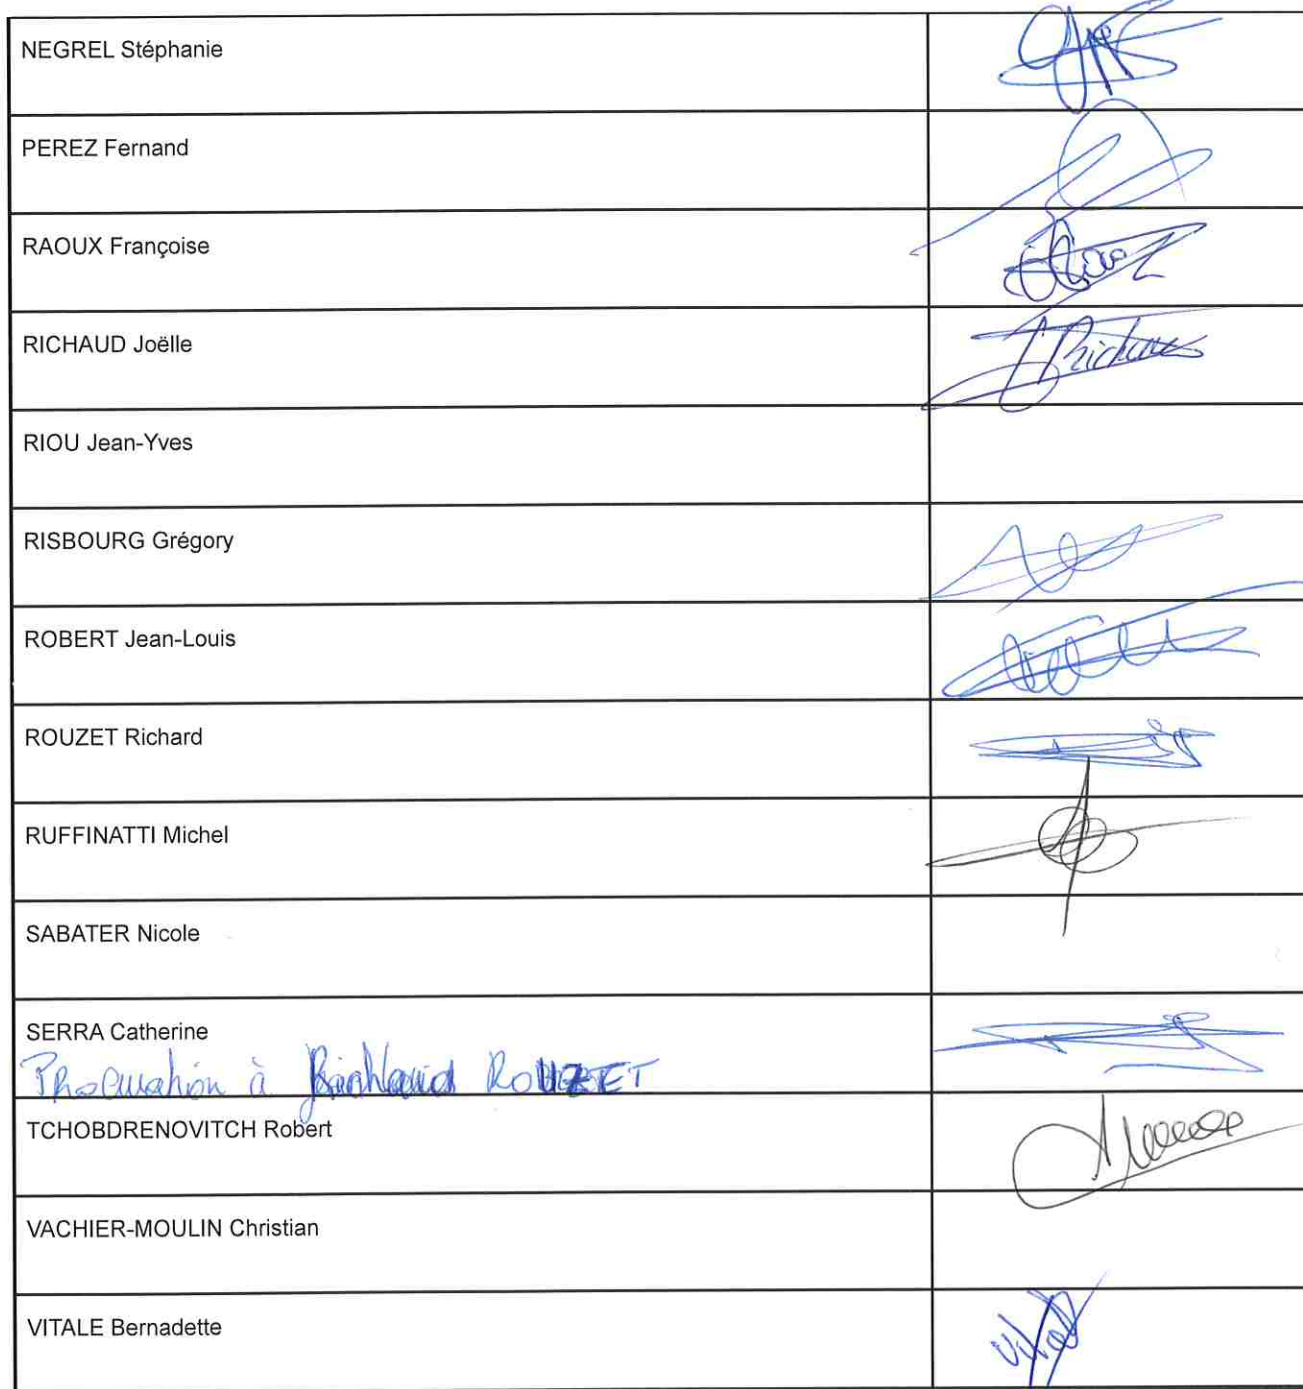 NEGREL Stéphanie
PEREZ Fernand
RAOUX Françoise
RICHAUD Joëlle
RIOU Jean-Yves
RISBOURG Grégory
ROBERT Jean-Louis
ROUZET Richard
RUFFINATTI Michel
SABATER Nicole
SERRA Catherine
Procuration à Richard ROUZET
TCHOBDRENOVITCH Robert
VACHIER-MOULIN Christian
VITALE Bernadette